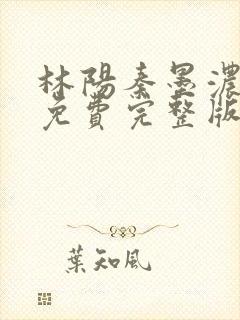 林陽秦墨濃
免費完整版
葉知風